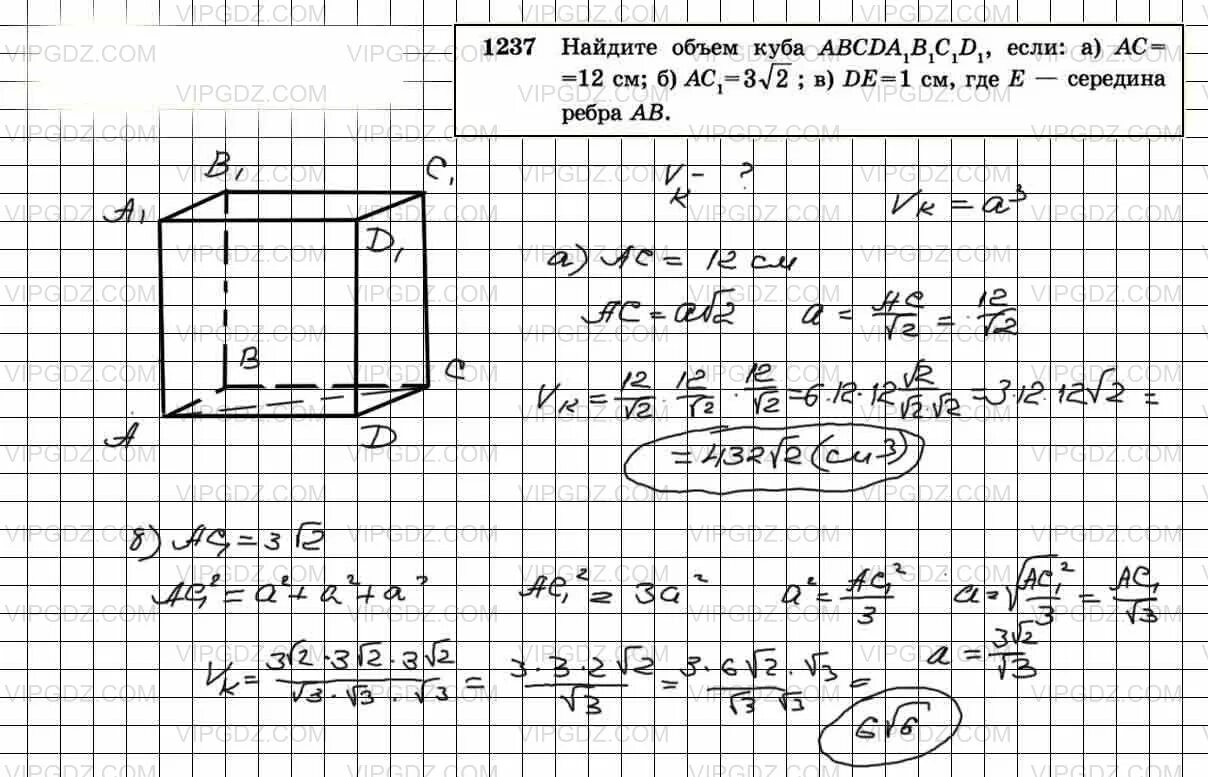 1237 Найдите объем куба ABCDA₁B₁C₁D₁, если: а) AC=
=12 см; б) AC₁=3√2 ; в) DE=1 см, где E — середина
ребра AB.
B₁ C₁
A₁ D₁
B C
A D
Vк - ?
Vк = a³
а) AC = 12 см
AC = a√2 a = AC/√2 = 12/√2
Vк = 12/√2 · 12/√2 · 12/√2 = 6·12·12 √2/(√2·√2) = 3·12·12√2 =
= 432√2 (см³)
б) AC₁ = 3√2
AC₁² = a² + a² + a² AC₁² = 3a² a² = AC₁²/3 a = √(AC₁²/3) = AC₁/√3
a = 3√2/√3
Vк = (3√2 · 3√2 · 3√2)/(√3 · √3 · √3) = (3·3·2√2)/√3 = (3·6√2·√3)/(√3 √3) =
6√6
VIPGDZ.COM